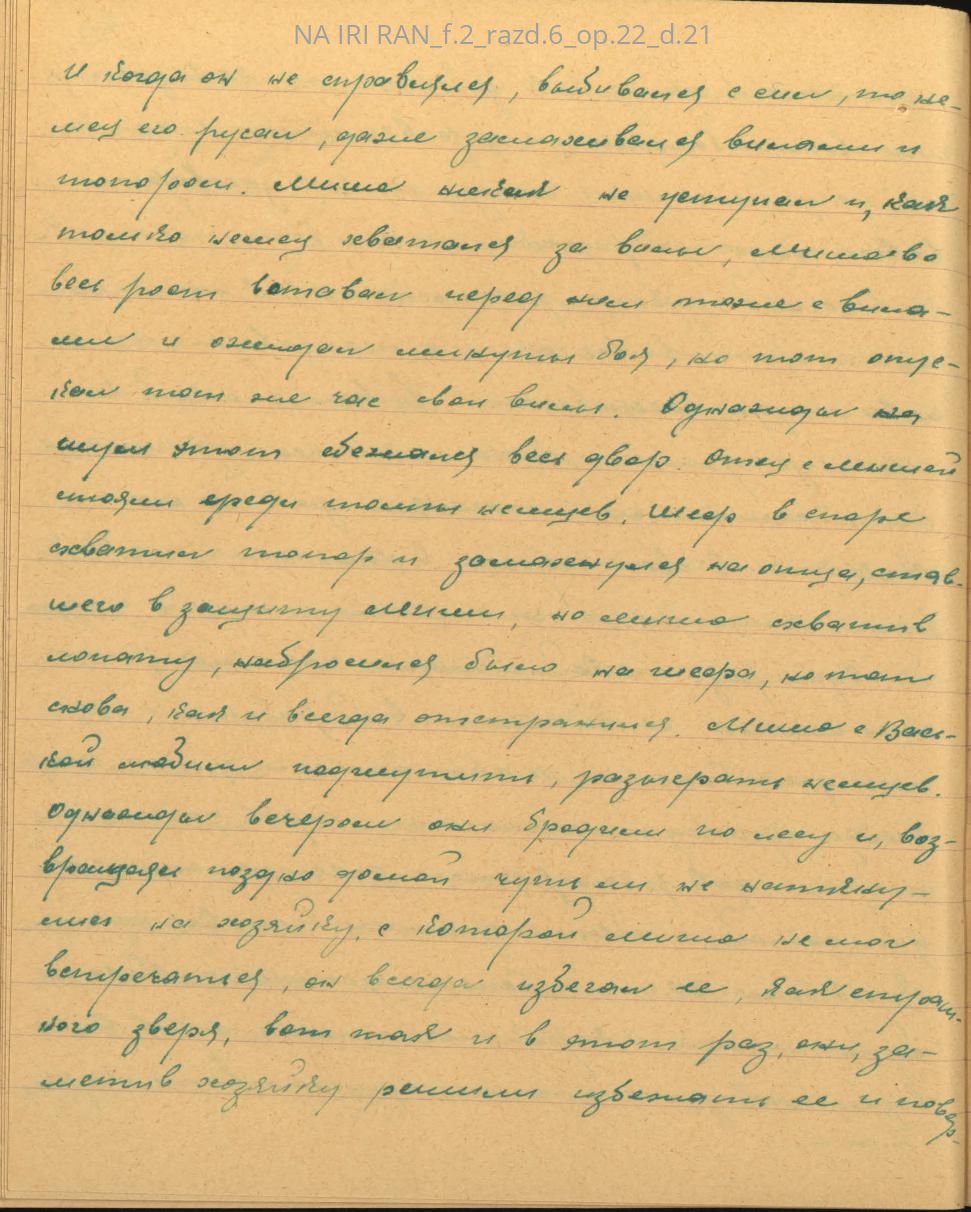 NA IRI RAN_f.2_razd.6_op.22_d.21
и когда он не справлялся, выбивался с сил, то не-
мец его ругал, даже замахивался вилами и
топором. Миша никак не уступал и, как
только немец хватался за вилы, Миша во
весь рост вставал перед ним тоже с вила-
ми и ожидал минуты боя, но тот опус-
кал тот же час свои вилы. Однажды на
шум этот сбежался весь двор. Отец с Мишей
стояли среди толпы немцев. Шеф в споре
схватил топор и замахнулся на отца, став-
шего в защиту Миши, но Миша схватив
лопату, набросился было на шефа, но тот
снова, как и всегда отстранился. Миша с Вась-
кой любили подшутить, разыграть немцев.
Однажды вечером они бродили по лесу и, воз-
вращаясь поздно домой чуть ли не наткну-
лись на хозяйку, с которой Миша не мог
встречаться, он всегда избегал ее, как страш-
ного зверя, вот так и в этот раз, они, за-
метив хозяйку решили избежать ее и повер-